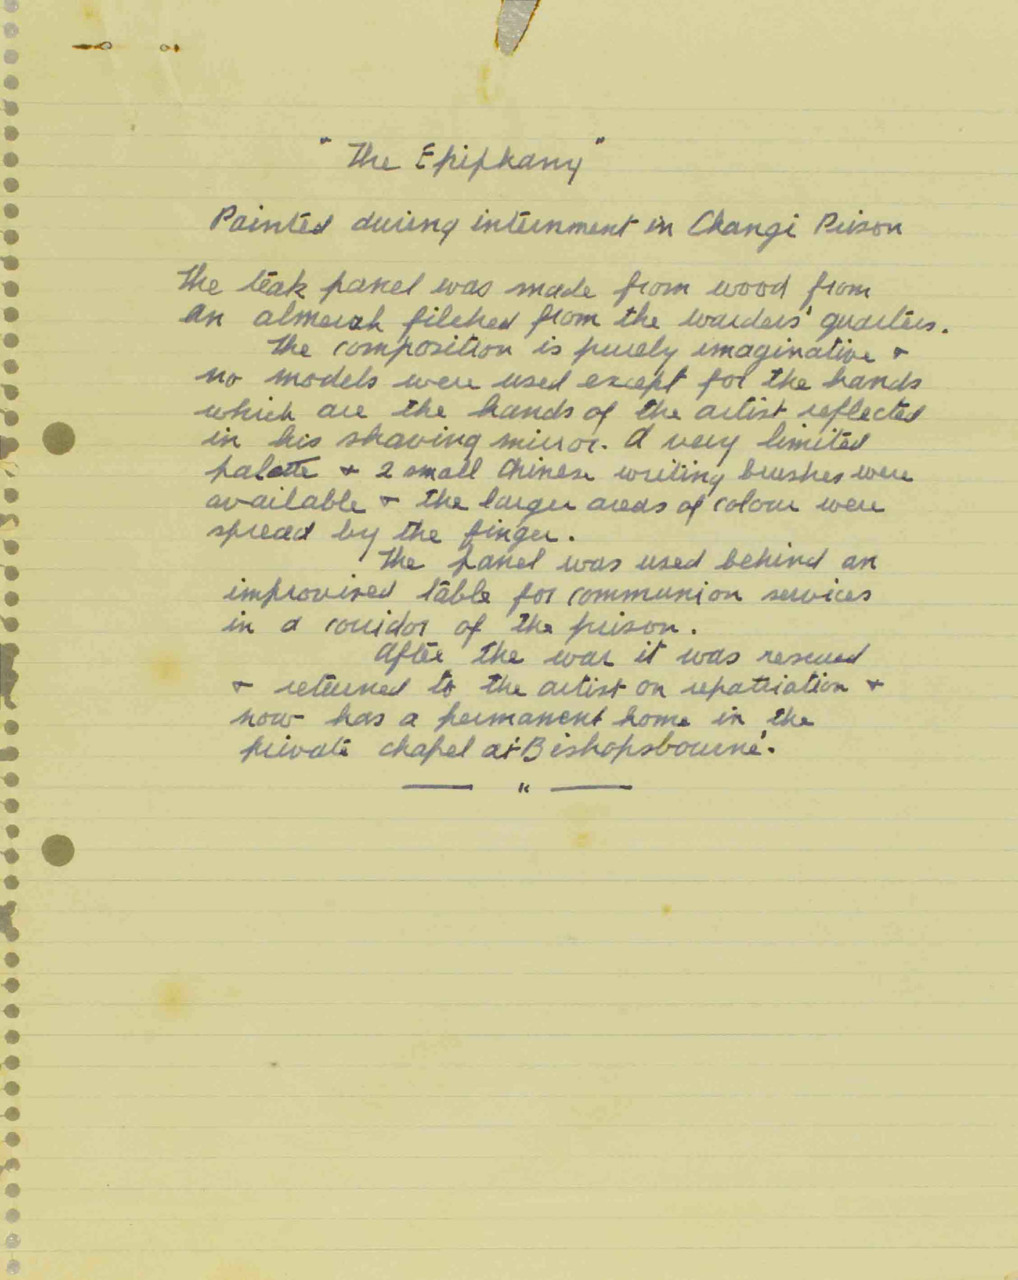 "The Epiphany"
Painted during internment in Changi Prison
The teak panel was made from wood from
an almerah filched from the warders' quarters.
The composition is purely imaginative +
no models were used except for the hands
which are the hands of the artist reflected
in his shaving mirror. A very limited
palette + 2 small Chinese writing brushes were
available + the larger areas of colour were
spread by the finger.
The panel was used behind an
improvised table for communion services
in a corridor of the prison.
After the war it was rescued
+ returned to the artist on repatriation +
now has a permanent home in the
private chapel at Bishopsbourne.
— " —